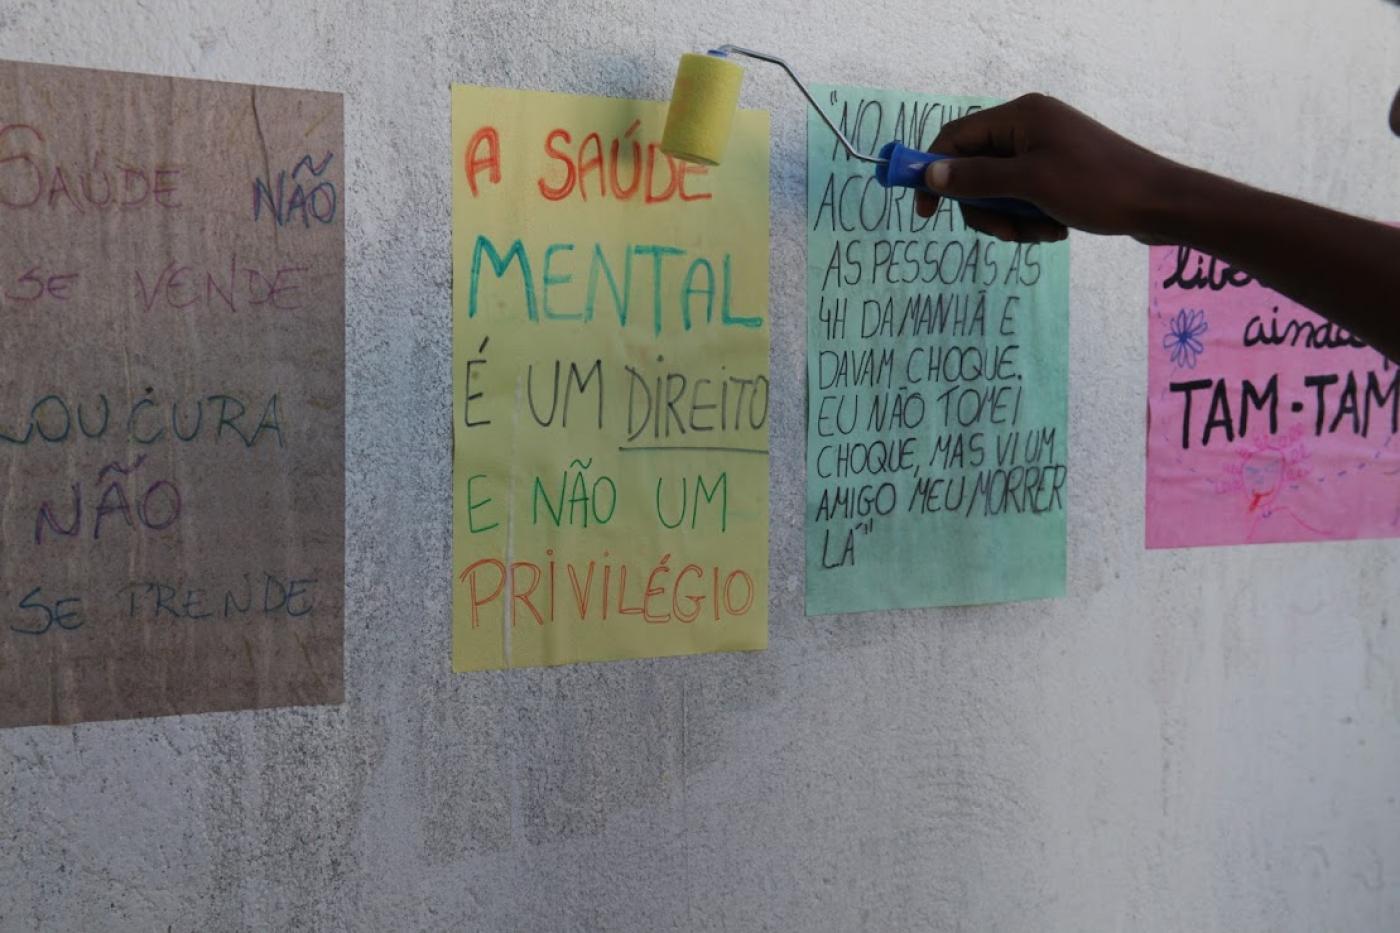 SAÚDE NÃO
SE VENDE
LOUCURA
NÃO
SE PRENDE
A SAÚDE
MENTAL
É UM DIREITO
E NÃO UM
PRIVILÉGIO
"NO
AS PESSOAS AS
4H DA MANHÃ E
DAVAM CHOQUE.
EU NÃO TOMEI
CHOQUE, MAS VI UM
AMIGO MEU MORRER
LÁ"
ainda
TAM-TAM